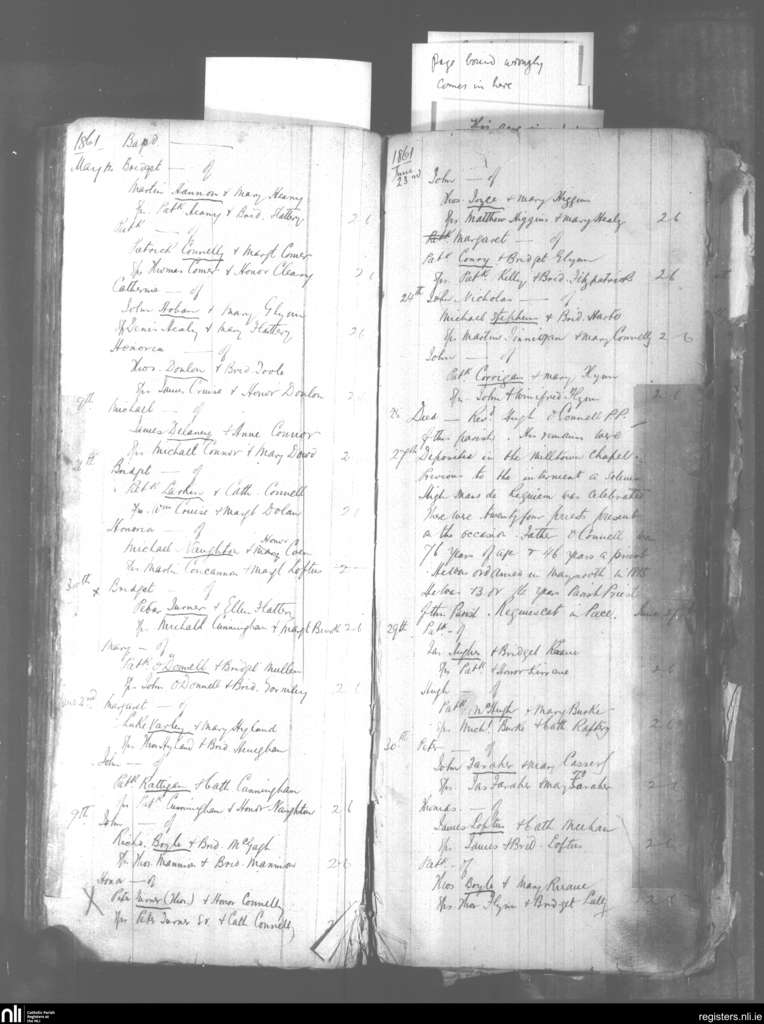 Page bound wrongly
comes in here
1861 Bapd
May Bridget — of
Martin Hannon & Mary Heany
Sps Patk Heany & Brid. Flattery 2 6
Patk — of
Patrick Connelly & Margt Comer
Sps Thomas Comer & Honor Cleary 2 6
Catherine — of
John Hoban & Mary Glynn
Sps Denis Healy & Mary Flattery 2 6
Honoria — of
Thos. Donlon & Brid Toole
Sps James Cruise & Honor Donlon 2
Michael — of
James Delaney & Anne Connor
Sps Michael Connor & Mary Dowd 2
26th Bridget — of
Patk Larken & Cath. Connell
Sps Wm Cruise & Margt Dolan 2
Honoria — of
Honor
Michael Naughton & Mary
Sps Martin Concannon & Margt Loftus 2
30th Bridget of
x
Peter Turner & Ellen Flattery
Sps Michael Cunningham & Margt Burke 2-6
Mary — of
Patk O'Donnell & Bridget Mullen
Sps John O'Donnell & Brid. 2 6
June 2nd Margaret — of
Luke Varley & Mary Hyland
Sps Thos Hyland & Brid Heneghan
John — of
Patk Rattigan & Cath Cunningham
Sps Patk Cunningham & Honor Naughton 2 6
9th John — of
Richd. Boyle & Brid. McGagh
Sps Thos. Mannion & Brid. Mannion 2-6
Honor — of
X
Peter Turner (Thos) & Honor Connelly
Sps Peter Turner Sr. & Cath Connelly 2
1861
June 23rd John — of
Thos. Joyce & Mary Higgins
Sps Matthew Higgins & Mary Healy 2-6
Patk Margaret — of
Patk Conry & Bridget Glynn
Sps. Patk Kelly & Brid. Fitzpatrick 2-6
24th John Nicholas — of
Michael Stephens & Brid.
Sps Martin Finnegan & Mary Connelly 2-6
John — of
Patk. Corrigan & Mary Flynn
Sps. John & Winifred Flynn 2-6
Died — Revd. Hugh O'Connell P.P.
of this parish. His remains were
27th Deposited in the Milltown Chapel.
Previous to the interment a Solemn
High Mass de Requiem was celebrated
There were twenty four priests present
on the occasion. Father O'Connell was
76 years of age & 46 years a priest
He was ordained in Maynooth in 1815
He was 13 or years Parish Priest
of this Parish. Requiescat in Pace. June 27
29th Patk — of
Jas. Hughes & Bridget Ruane
Sps Patk & Honor Kirrane 2-6
Hugh — of
Patk McHugh & Mary Burke
Sps Michl. Burke & Cath Raftery 2-6
30th Peter — of
John Faraher & Mary Casserly
Sps Jas Faraher & Mary Faraher 2-6
Thomas — of
James Loftus & Cath Meehan
Sps James & Brid. Loftus 2-6
Patk — of
Thos Boyle & Mary Ruane
Sps Thos Flynn & Bridget Lally 2 6
nli
Catholic Parish
Registers at
the NLI
registers.nli.ie